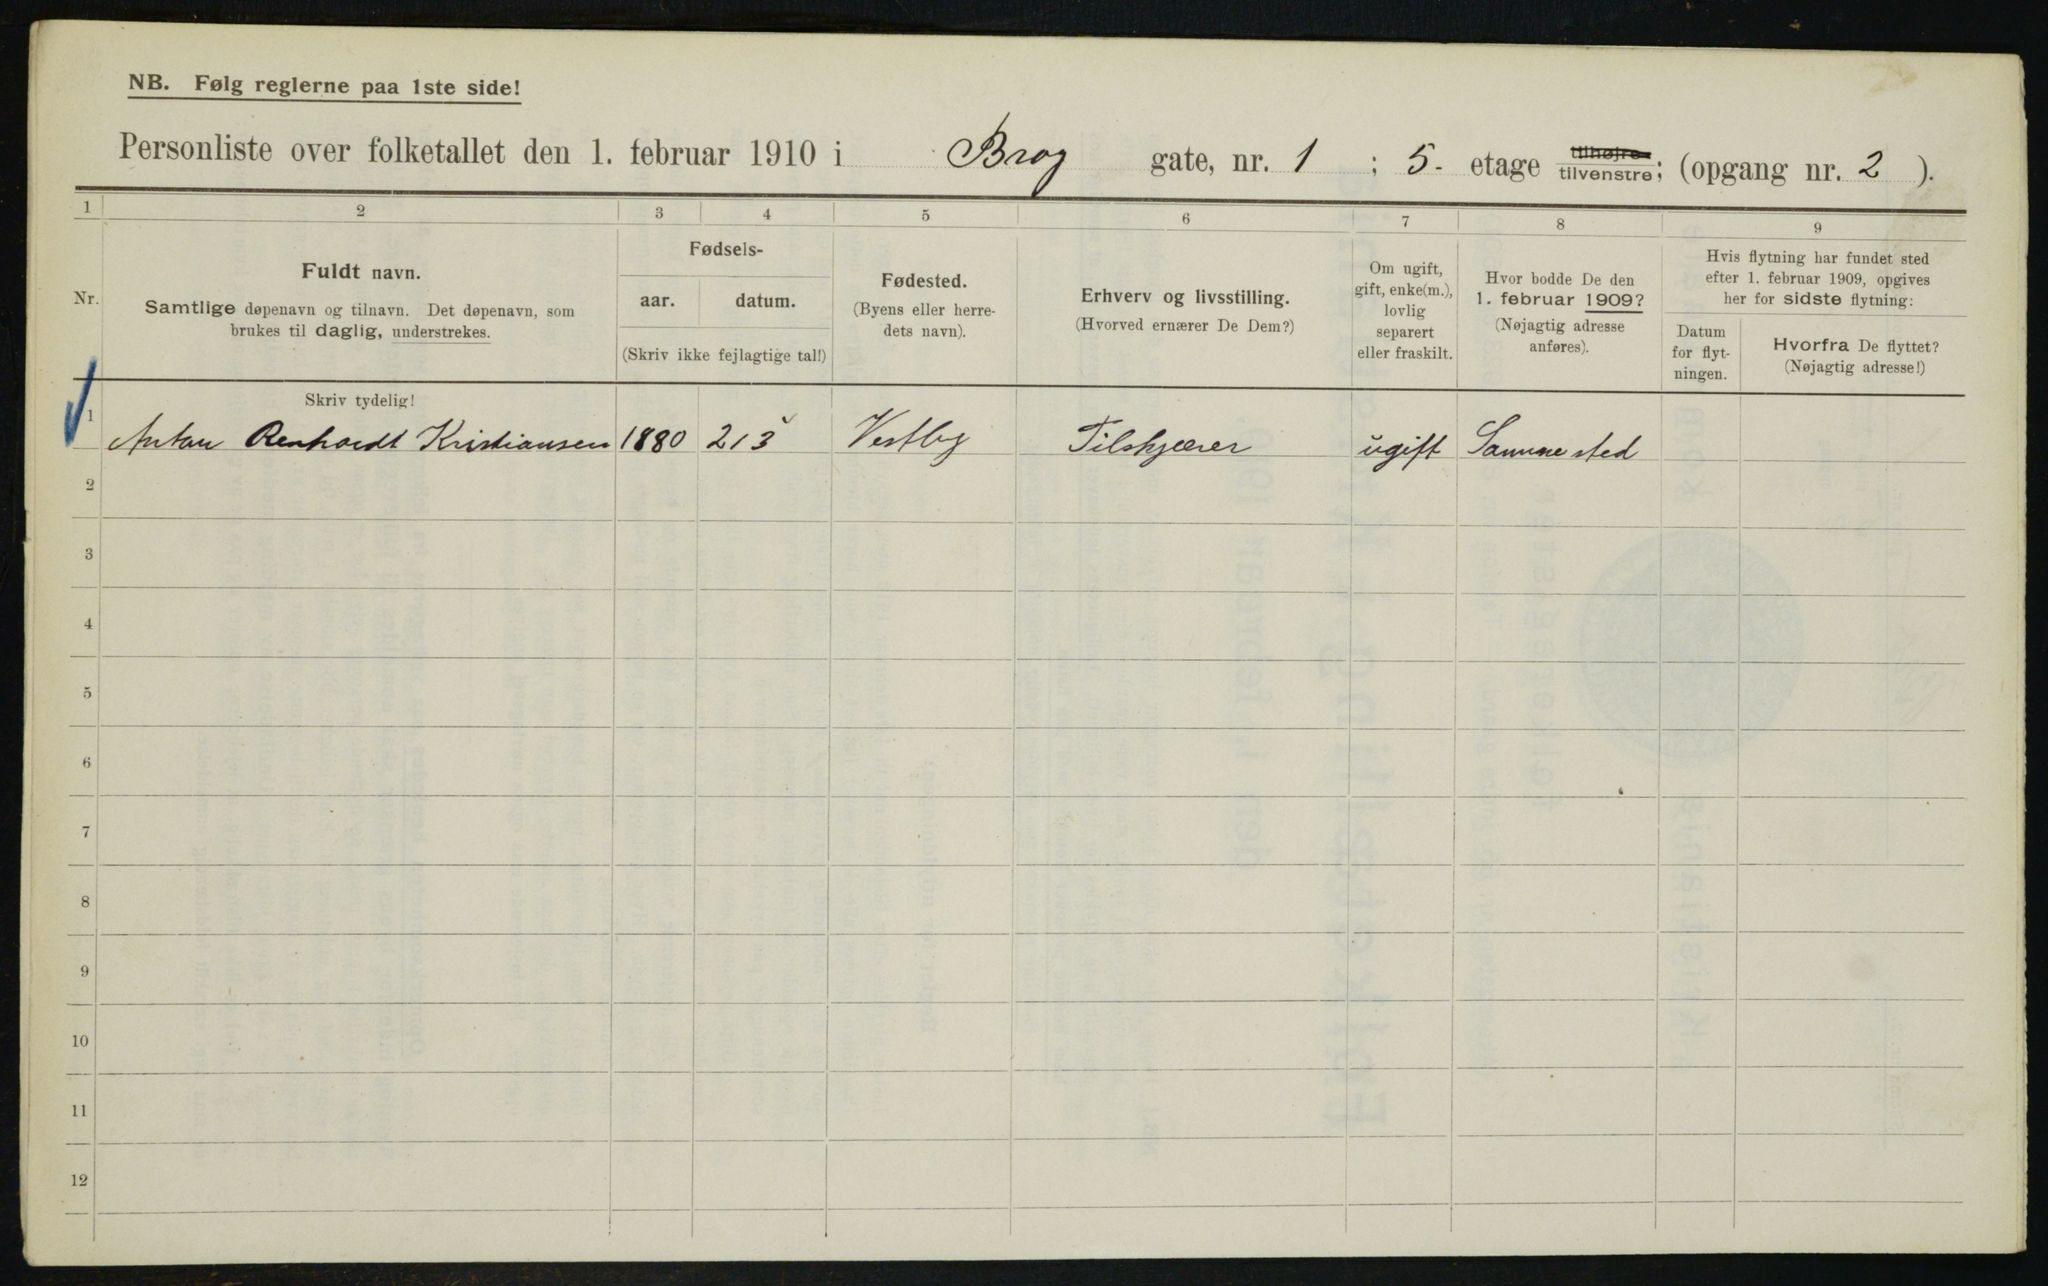 NB. Følg reglerne paa 1ste side!
Personliste over folketallet den 1. februar 1910 i Brog gate, nr. 1 ; 5. etage tilhøjre tilvenstre; (opgang nr. 2 ).
1 2 3 4 5 6 7 8 9
Nr.
Fuldt navn.
Samtlige døpenavn og tilnavn. Det døpenavn, som
brukes til daglig, understrekes.
Fødsels-
aar. datum.
(Skriv ikke fejlagtige tal!)
Fødested.
(Byens eller herre-
dets navn).
Erhverv og livsstilling.
(Hvorved ernærer De Dem?)
Om ugift,
gift, enke(m.),
lovlig
separert
eller fraskilt.
Hvor bodde De den
1. februar 1909?
(Nøjagtig adresse
anføres).
Hvis flytning har fundet sted
efter 1. februar 1909, opgives
her for sidste flytning:
Datum
for flyt-
ningen.
Hvorfra De flyttet?
(Nøjagtig adresse!)
Skriv tydelig!
1 Anton Renhardt Kristiansen 1880 21 3 Vestby Tilskjærer ugift Samme sted
2
3
4
5
6
7
8
9
10
11
12